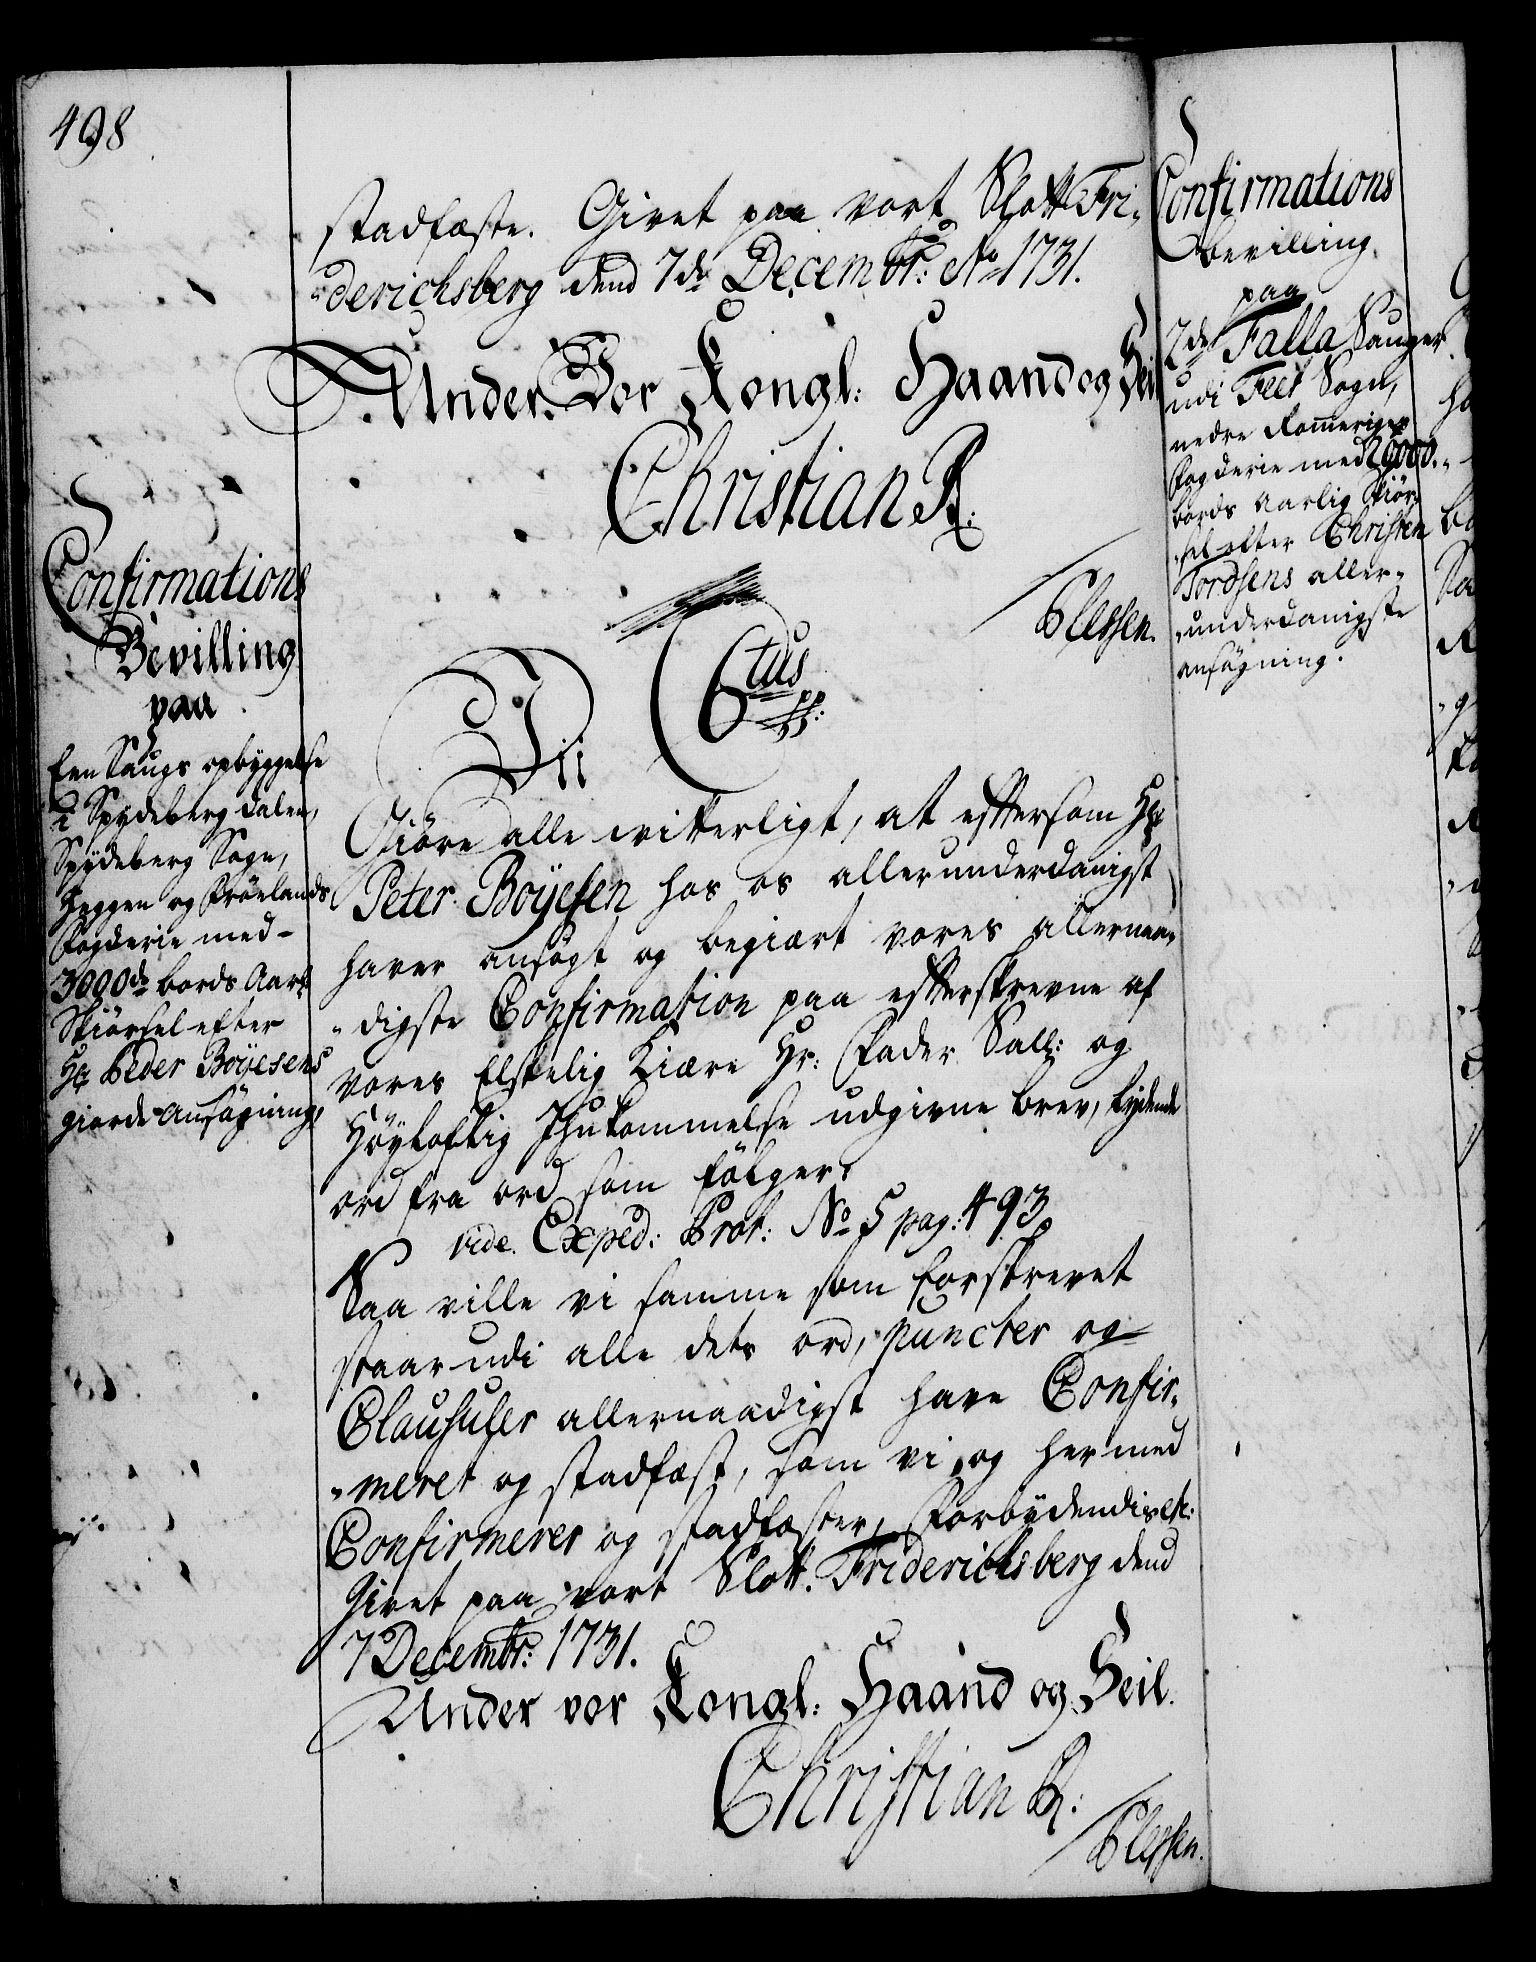 498
stadfæste. Givet paa vort Slott Fri„
„derichsberg dend 7de Decembr: Ao 1731.
Under Vor Kongl: Haand og Seil
Christian R:
Plessen.
Confirmations
Bevilling
paa
Een Saugs opbyggelse
i Spydeberg dalen,
Spydeberg Sogn,
Heggen og Frölands
Fogderie med
3000de bords Aarl:
Skiörsel efter
Hr Peder Boyesens
giorde Ansögning,
Vii C 6tus pp:
Giöre alle vitterligt, at eftersom Hr
Peter Boyesen hos os allerunderdanigst
haver ansögt og begiært vores allernaa„
„digste Confirmation paa efterskrevne af
vores Elskelig Kiære Hr: Fader Sall: og
Höyloflig Ihukommelse udgivne brev, lydende
ord fra ord som fölger.
vide. Exped: Prot: No 5 pag: 493
Saa ville vi samme som forskrevet
staar udi alle dets ord, puncter og
Clausuler allernaadigst have Confir„
„meret og stadfæst, som vi og hermed
Confirmerer og stadfæster, Forbydendis etc:
Givet paa vort Slott. Friderichsberg dend
7 Decembr: 1731.
Under vor Kongl: Haand og Seil.
Christian R:
Plessen.
Confirmations
bevilling
paa
2de Falla Sauger
udi Feet Sogn,
nedre Romerigs
Fogderie med 9000.
bords aarlig Skiör„
„sel efter Christen
Tordsens aller„
„underdanigste
ansögning.